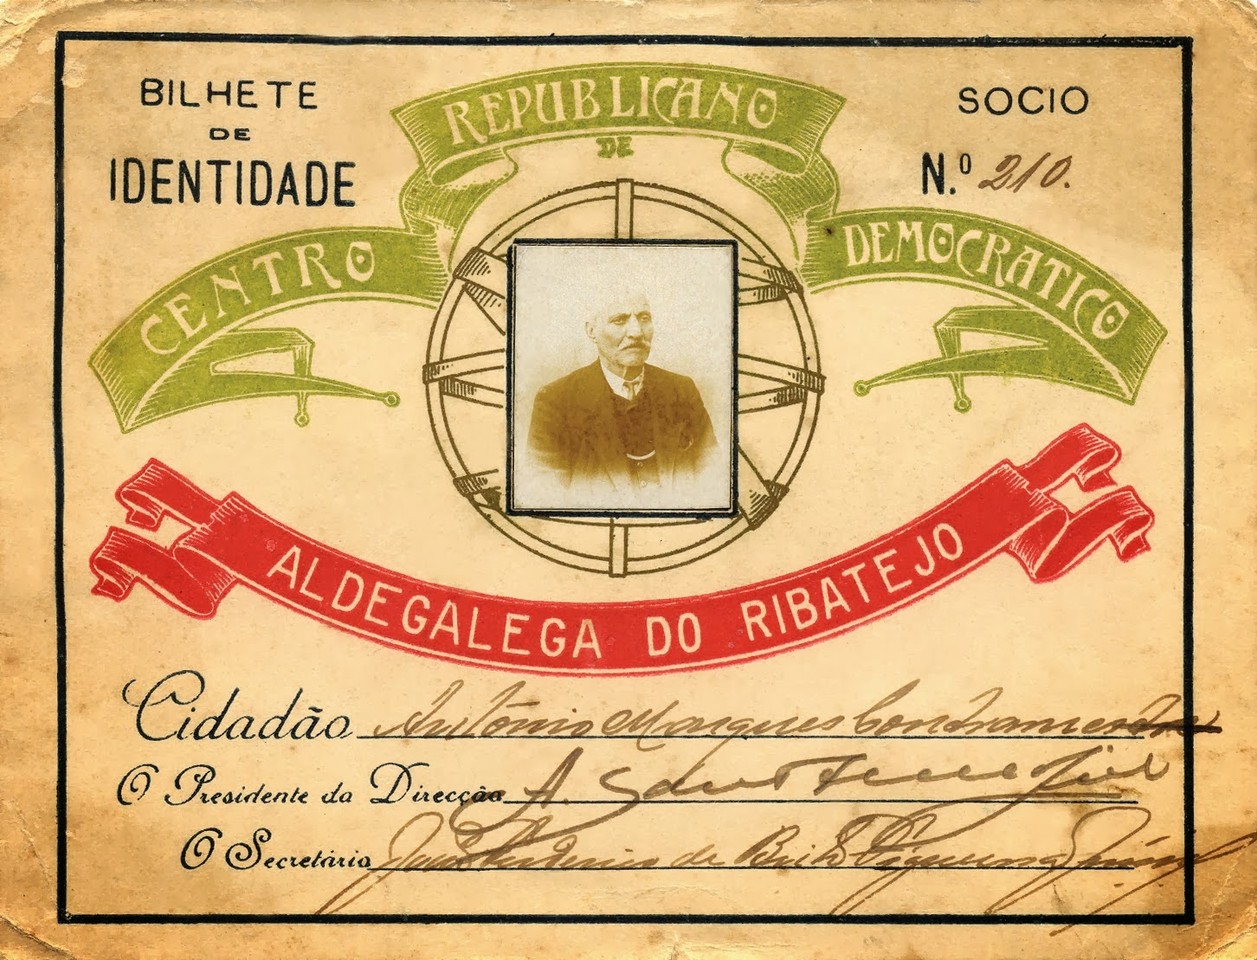 BILHETE
DE
IDENTIDADE
SOCIO
N.º 210.
CENTRO
REPUBLICANO
DE
DEMOCRATICO
ALDEGALEGA DO RIBATEJO
Cidadão António Marques Contramestre
O Presidente da Direcção A.
O Secretário de Brito Figueirôa Júnior